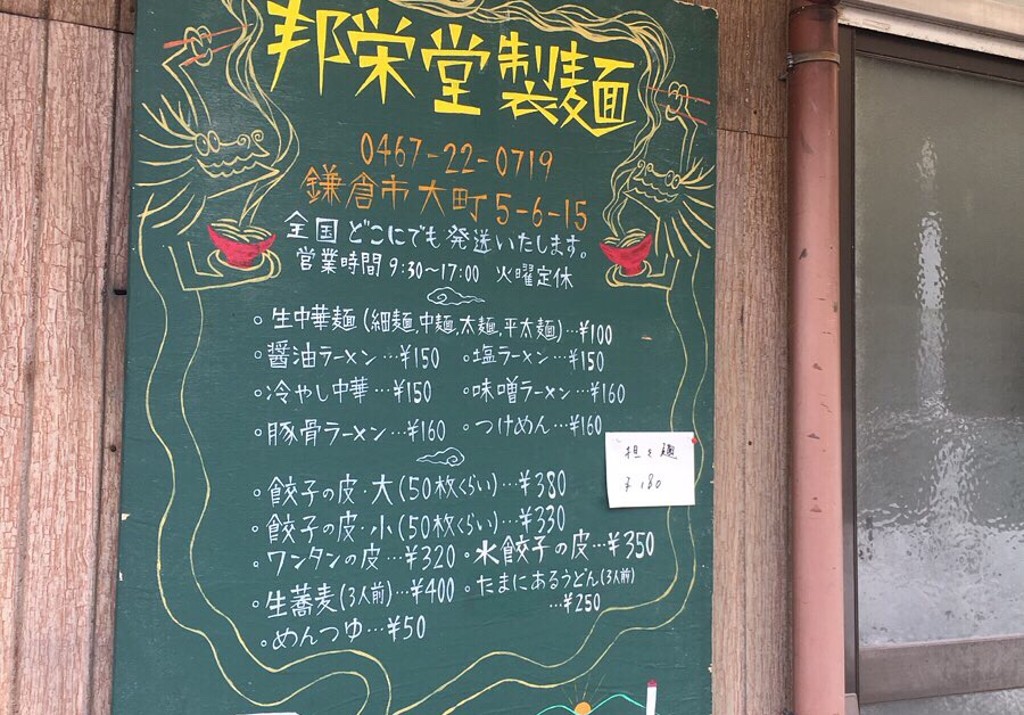 邦栄堂製麺
0467-22-0719
鎌倉市大町5-6-15
全国どこにでも発送いたします。
営業時間9:30～17:00 火曜定休
。生中華麺(細麺,中麺,太麺,平太麺)…¥100
。醤油ラーメン…¥150 。塩ラーメン…¥150
。冷やし中華…¥150 。味噌ラーメン…¥160
。豚骨ラーメン…¥160 。つけめん…¥160
担々麺
¥180
。餃子の皮・大(50枚くらい)…¥380
。餃子の皮・小(50枚くらい)…¥330
。ワンタンの皮…¥320 。水餃子の皮…¥350
。生蕎麦(3人前)…¥400 。たまにあるうどん(3人前)
…¥250
。めんつゆ…¥50